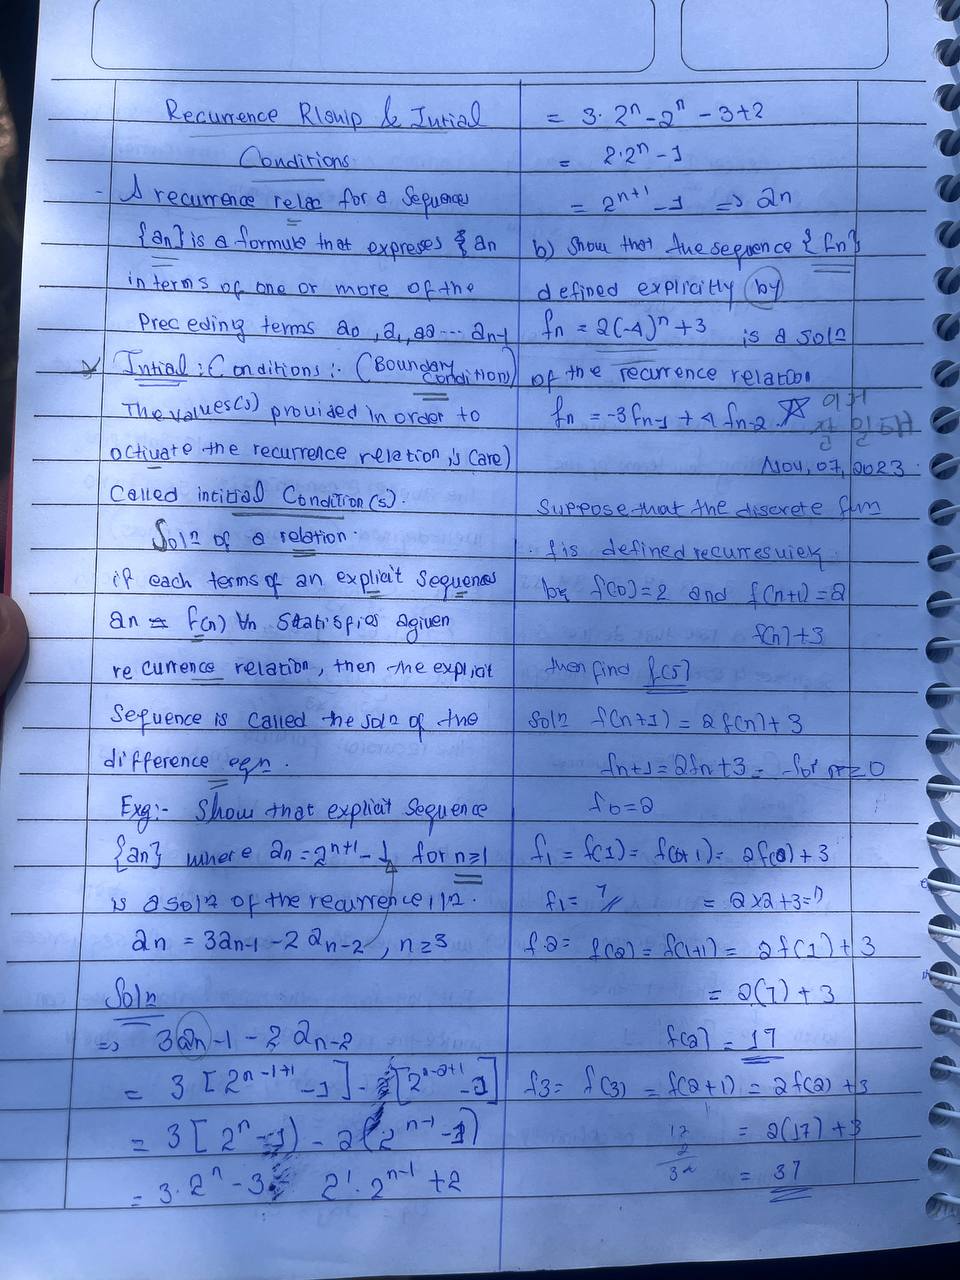 Recurrence Rlship & Intial
Conditions
- A recurrence relac for a Sequences
{an} is a formula that expreses an
in terms of one or more of the
Preceding terms a0, a1, a2 ... an-1
Intial : Conditions :- (Boundary
Condition)
The values(s) provided in order to
activate the recurrence relation, is (are)
Called intitial Condition(s).
Soln of a relation.
if each terms of an explicit sequences
an = f(n) ∀n Statisfies a given
recurrence relation, then the explicit
Sequence is called the soln of the
difference eqn.
Exg:- Show that explicit Sequence
{an} where an = 2ⁿ⁺¹ - 1 for n≥1
is a soln of the recurrence
an = 3an-1 - 2 an-2, n≥3
Soln
=> 3an-1 - 2 an-2
= 3 [2ⁿ⁻¹⁺¹ - 1] - 2[2ⁿ⁻²⁺¹ - 1]
= 3 [2ⁿ - 1) - 2(2ⁿ⁻¹ - 1)
= 3·2ⁿ - 3 2¹·2ⁿ⁻¹ + 2
= 3·2ⁿ - 2ⁿ - 3 + 2
= 2·2ⁿ - 1
= 2ⁿ⁺¹ - 1 => an
b) Show that the sequence {fn}
defined explicitly by
fn = 2(-4)ⁿ + 3 is a soln
of the recurrence relation
fn = -3fn-1 + 4 fn-2 ☆
Nov, 07, 2023
Suppose that the discrete fun
f is defined recurresuiek
by f(0) = 2 and f(n+1) = 2
f(n) + 3
then find f(5)
soln f(n+1) = 2f(n) + 3
fn+1 = 2fn + 3 - for n≥0
f0 = 2
f1 = f(1) = f(0+1) = 2f(0) + 3
f1 = 7 // = 2x2+3=7
f2 = f(2) = f(1+1) = 2f(1) + 3
= 2(7) + 3
f(2) = 17
f3 = f(3) = f(2+1) = 2f(2) + 3
17 = 2(17) + 3
2
34 = 37